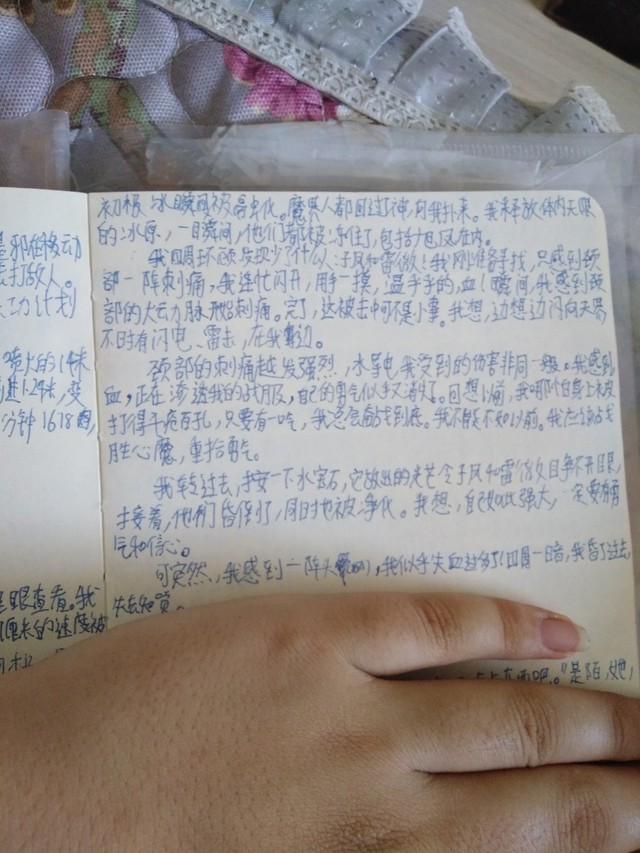 动
去打敌人。
动计划
喷火的14米
进1.29米,变
分钟1618
眼查看。我
厘米的速度被
初根 冰瞬间被 化。魔界人都回过了神,向我扑来。我释放体内无限
的冰原,一瞬间,他们都被冻住了,包括 在内。
我四周环顾发现少了什么:子风和雷傲!我刚准备寻找,只感到颈
部一阵刺痛,我连忙闪开,用手一摸,湿乎乎的,血!瞬间,我感到颈
部的大动脉开始刺痛。完了,这被击中可不是小事。我想,边想边闪向天
不时有闪电、雷击,在我身边。
颈部的刺痛越发强烈,水导电我受到的伤害非同一般。我感到
血,正在渗透我的战服,自己的勇气似乎又消失了。回想以前,我哪个自身上被
打得千疮百孔,只要有一口气,我总会奋战到底。我不能不如以前。我应该战
胜心魔,重拾勇气。
我转过去,按一下水宝石,它放出的光芒令子风和雷傲双目睁不开
接着,他们昏倒了,同时也被净化。我想,自己如此强大,一定要有勇
气和信心。
可突然,我感到一阵头 ,我似乎失血过多了!四周一暗,我昏了过去,
失去知觉。
吧。“是陌,她,